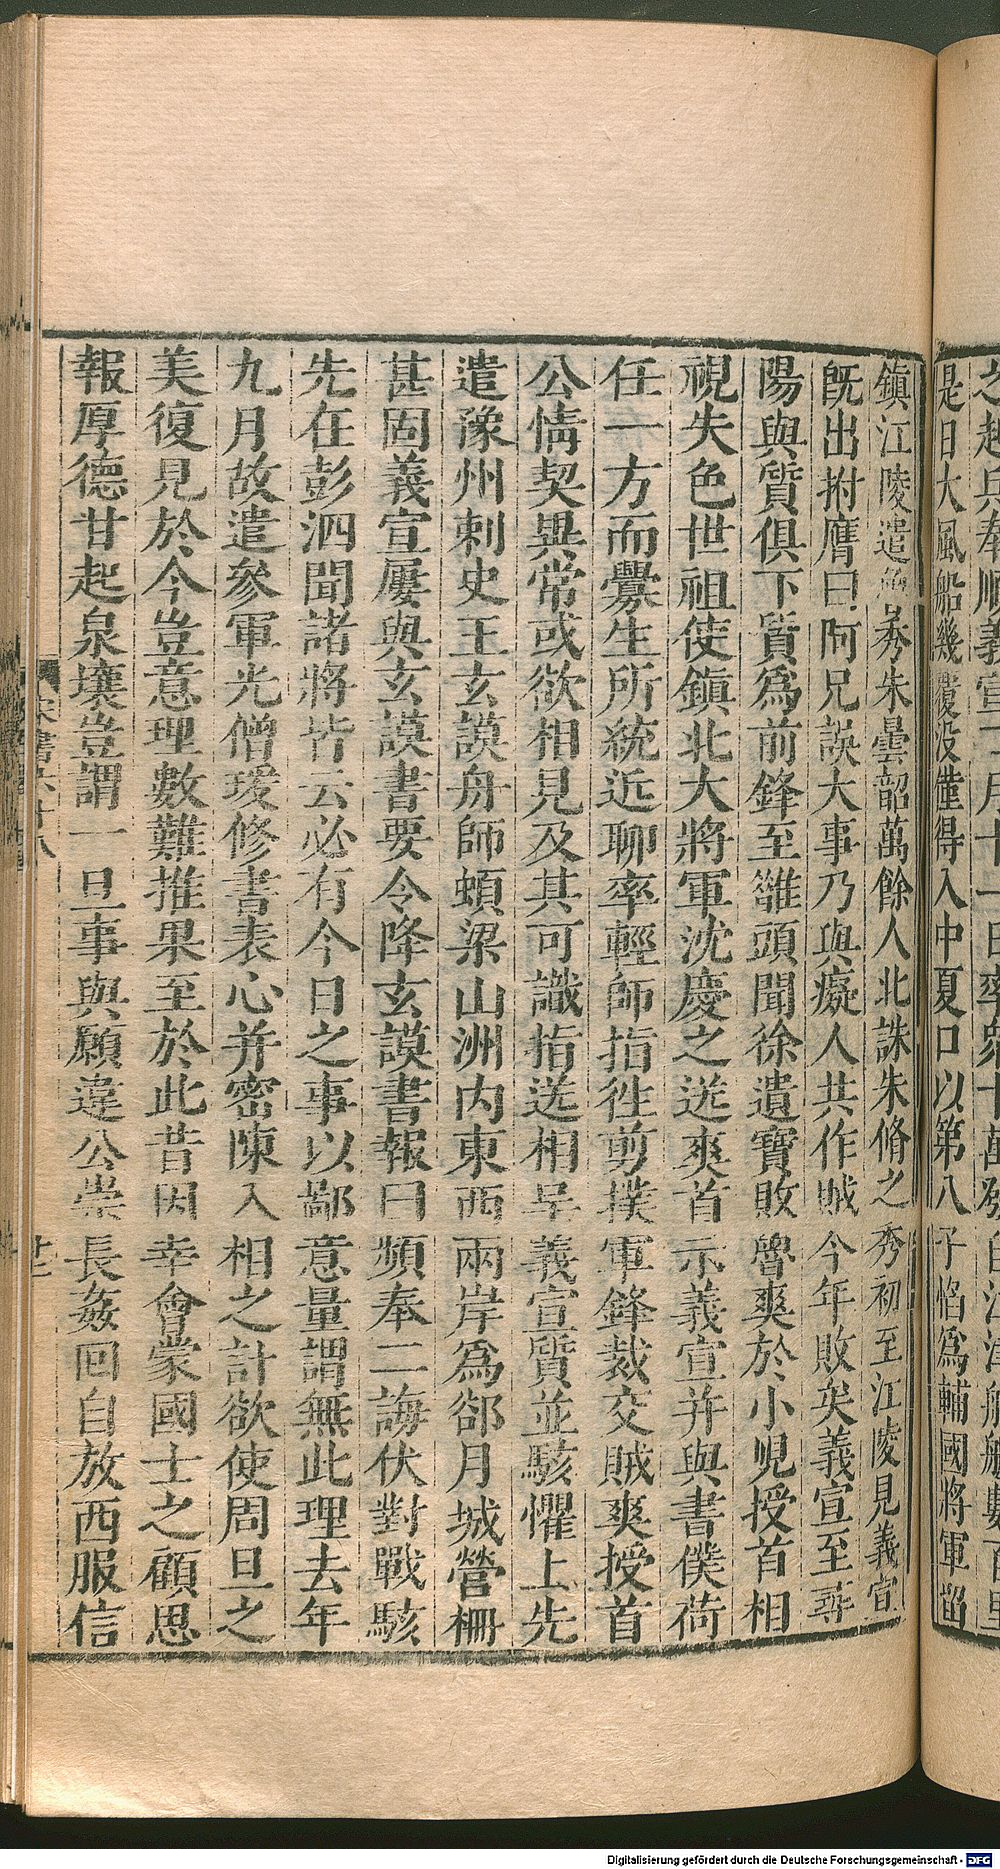 之起兵奉順義宣二月十一日率衆十萬發自江津舳艫數百里
是日大風船幾覆沒僅得入中夏口以第八子慆爲輔國將軍留
鎮江陵遣魯秀朱曇韶萬餘人北誅朱脩之秀初至江陵見義宣
旣出拊膺曰阿兄誤大事乃與癡人共作賊今年敗矣義宣至尋
陽與質俱下質爲前鋒至雒頭聞徐遺寶敗魯爽於小峴授首相
視失色世祖使鎮北大將軍沈慶之送爽首示義宣幷與書僕荷
任一方而釁生所統近聊率輕師指徃剪撲軍鋒裁交賊爽授首
公情契異常或欲相見及其可識指送相呈義宣質並駭懼上先
遣豫州刺史王玄謨舟師頓梁山洲內東西兩岸爲郤月城營柵
甚固義宣屢與玄謨書要令降玄謨書報曰頻奉二誨伏對戰駭
先在彭泗聞諸將皆云必有今日之事以鄙意量謂無此理去年
九月故遣參軍先僧瑗修書表心并密陳入相之計欲使周旦之
美復見於今豈意理數難推果至於此昔因幸會蒙國士之顧思
報厚德甘起泉壤豈謂一旦事與願違公崇長姦回自放西服信
宋書六十八
廿二
Digitalisierung gefördert durch die Deutsche Forschungsgemeinschaft - DFG